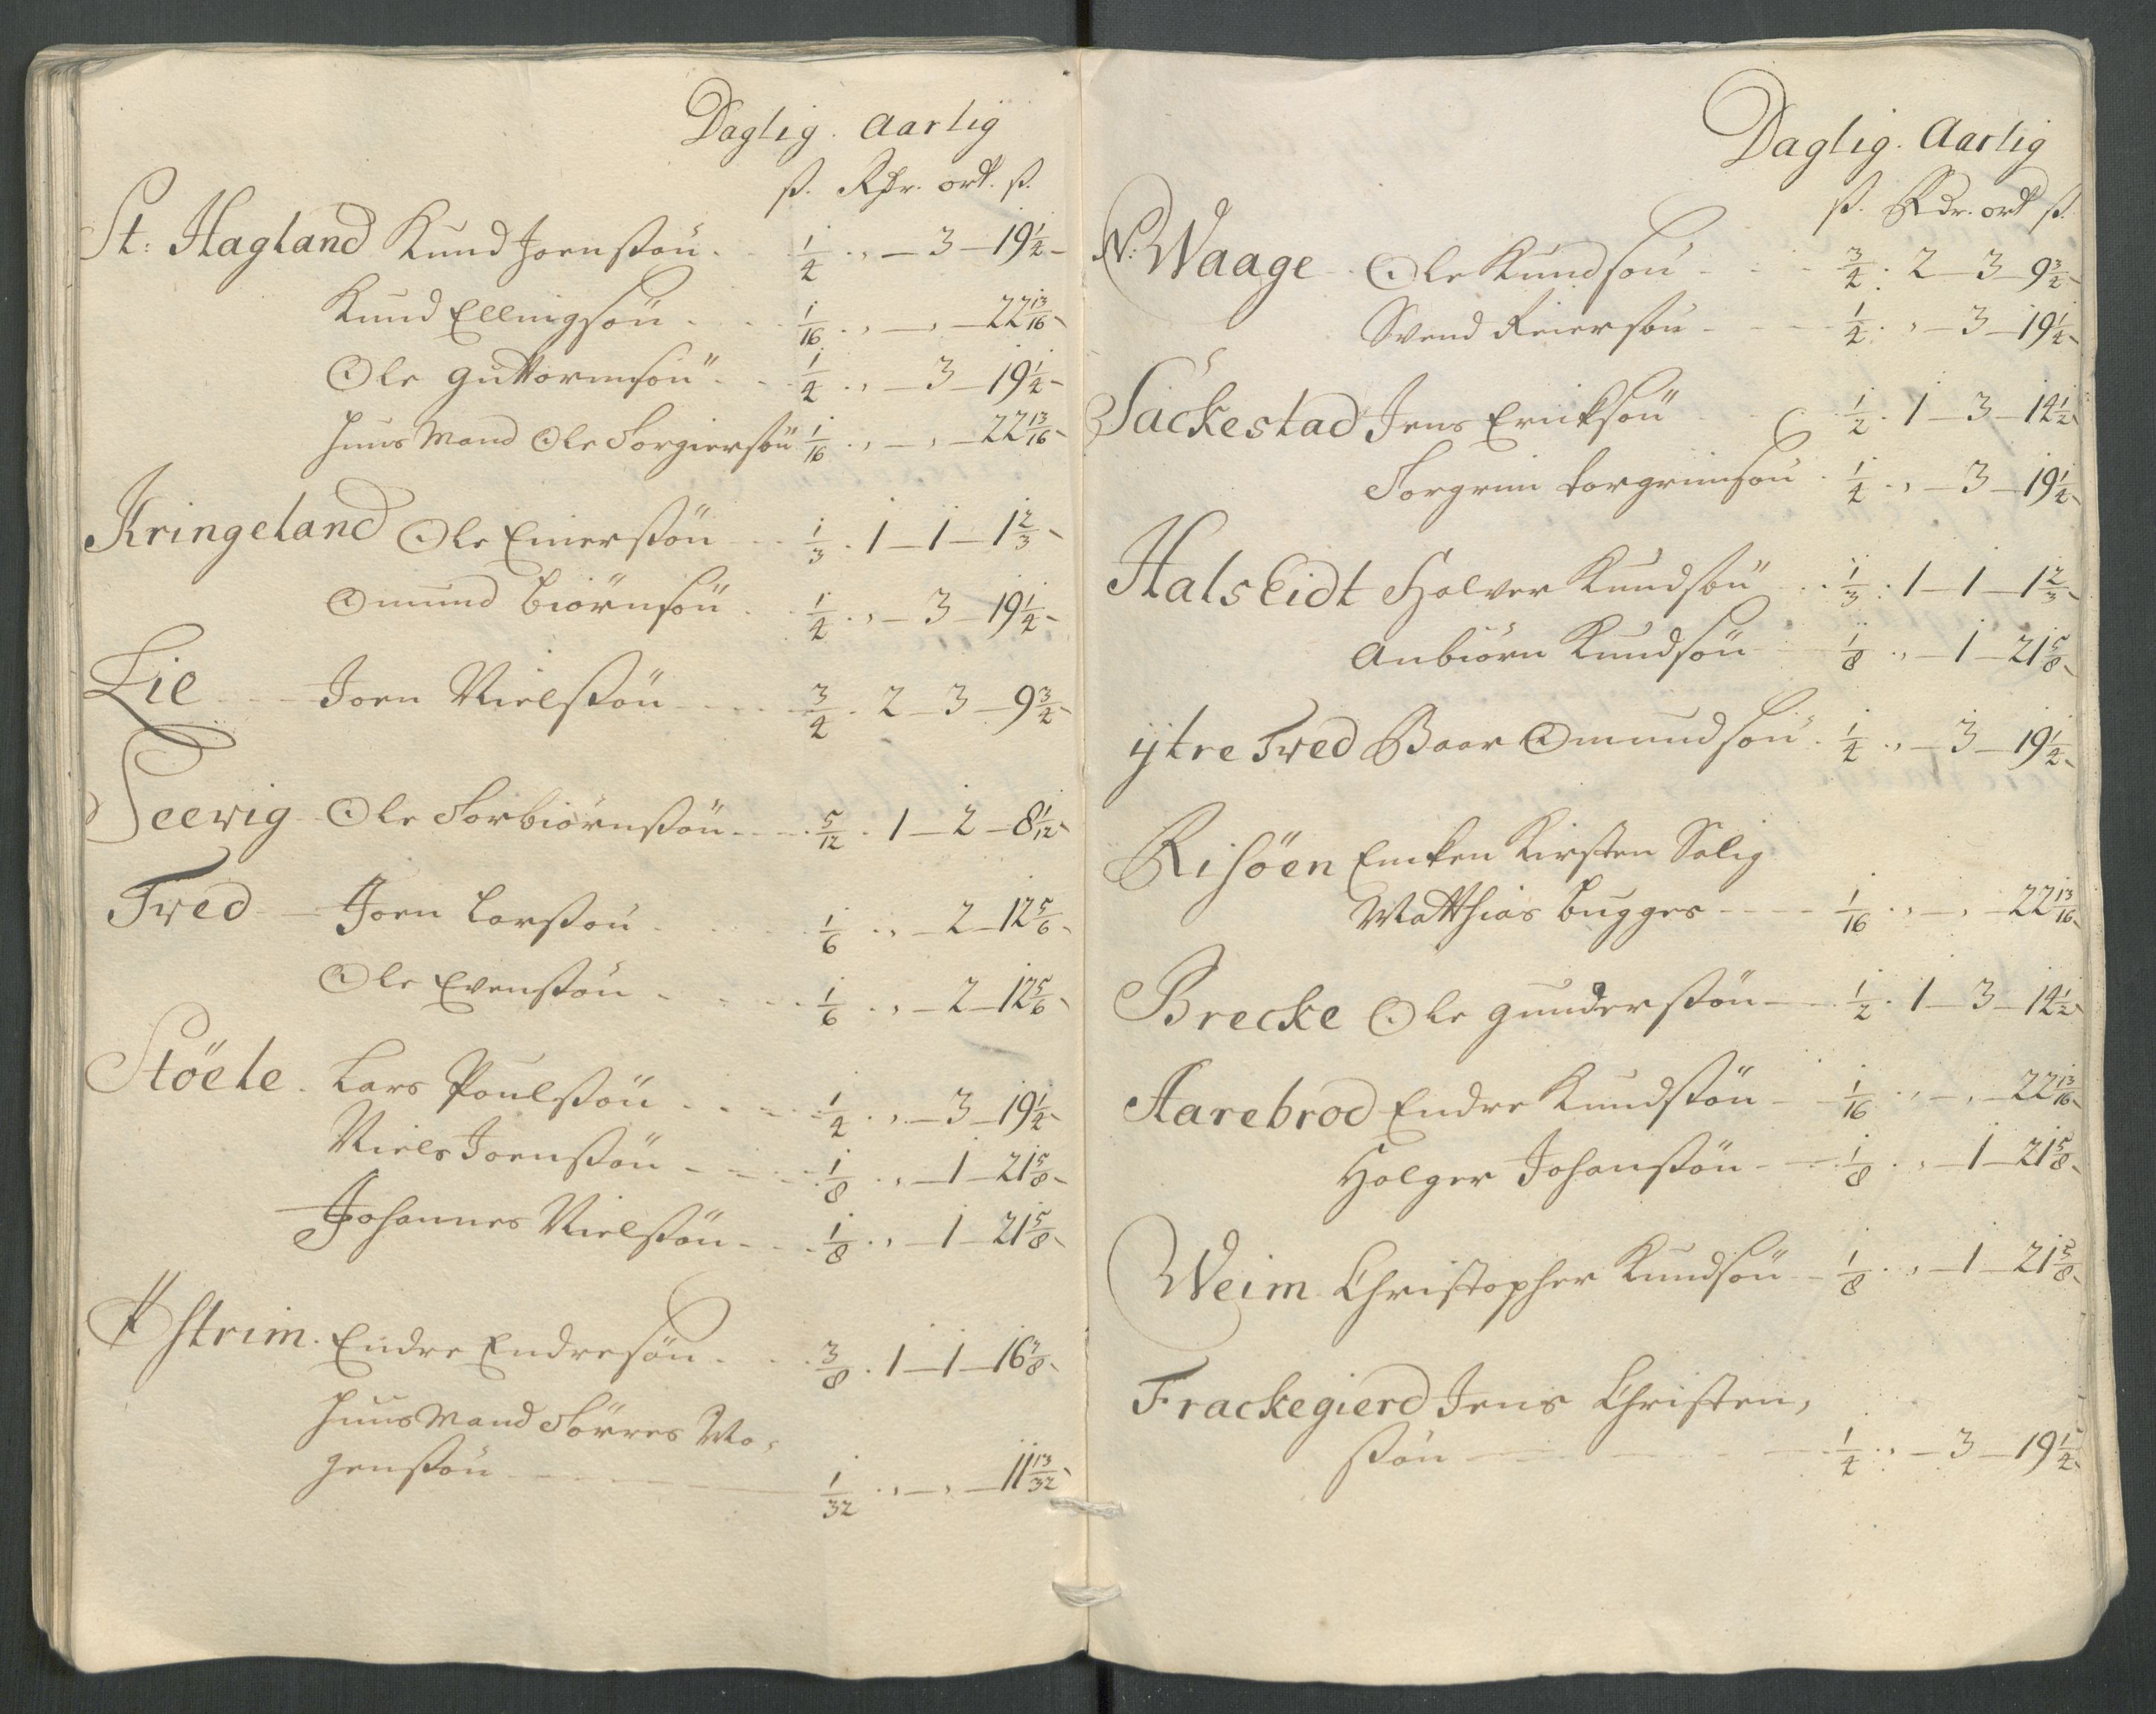 Daglig. Aarlig
ß. Rdr. ort. ß.
St: Hagland Knud Joensßøn. 1/4 . „ — 3 — 19 1/4
Knud Ellingsøn . 1/16 . „ — „ — 22 13/16
Ole Guttormsøn . 1/4 . „ — 3 — 19 1/4
Huus Mand Ole Torgiersøn 1/16 . „ — „ — 22 13/16
Kringeland Ole Einersßøn 1/3 . 1 — 1 — 1 2/3
Omund Biørnsøn . 1/4 . „ — 3 — 19 1/4
Lie Joen Nielsßøn 3/4 . 2 — 3 — 9 3/4
Seevig Ole Torbiørnsßøn 5/12 . 1 — 2 — 8 1/12
Tved Joen Larsßøn . 1/6 . „ — 2 — 12 5/6
Ole Evensßøn . 1/6 . „ — 2 — 12 5/6
Støele . Lars Poulsßøn 1/4 . „ — 3 — 19 1/4
Niels Joensßøn 1/8 . „ — 1 — 21 5/8
Johannes Nielsßøn 1/8 . „ — 1 — 21 5/8
strim. Endre Endresøn . 3/8 . 1 — 1 — 16 7/8
Huus Mand Tørres Mo-
gensßøn 1/32 . „ — „ — 11 13/32
Daglig. Aarlig
ß. Rdr. ort ß.
N: Waage Ole Knudsøn 3/4 . 2 — 3 — 9 3/4
Svend Reiersøn 1/4 . „ — 3 — 19 1/4
Sackestad Jens Ericksøn 1/2 . 1 — 3 — 14 1/2
Torgrim Torgrimsøn . 1/4 . „ — 3 — 19 1/4
Halseidt Halver Knudsøn 1/3 . 1 — 1 — 1 2/3
Anbiørn Knudsøn 1/8 . „ — 1 — 21 5/8
ijtre Tved Baar Omundsøn . 1/4 . „ — 3 — 19 1/4
Risøen Encken Kirsten Salig
Matthias Bugges 1/16 . „ — „ — 22 13/16
Brecke Ole Gundersßøn 1/2 . 1 — 3 — 14 1/2
Aarebrod Endre Knudsßøn 1/16 . „ — „ — 22 13/16
Holger Johansßøn 1/8 . „ — 1 — 21 5/8
Weim Christopher Knudsøn 1/8 . „ — 1 — 21 5/8
Frackegierd Jens Christen,
sßøn 1/4 . „ — 3 — 19 1/4